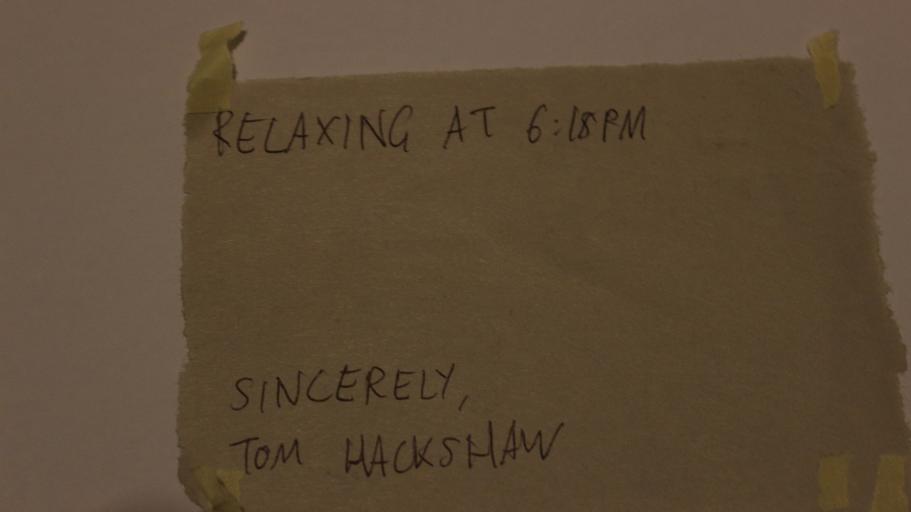 RELAXING AT 6:18PM
SINCERELY,
TOM HACKSHAW